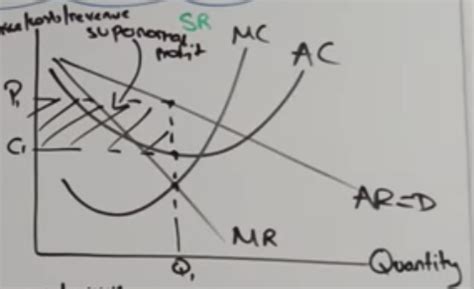 costs/revenue
SR
supernormal
profit
MC
AC
P₁
C₁
AR=D
MR
Q₁
Quantity